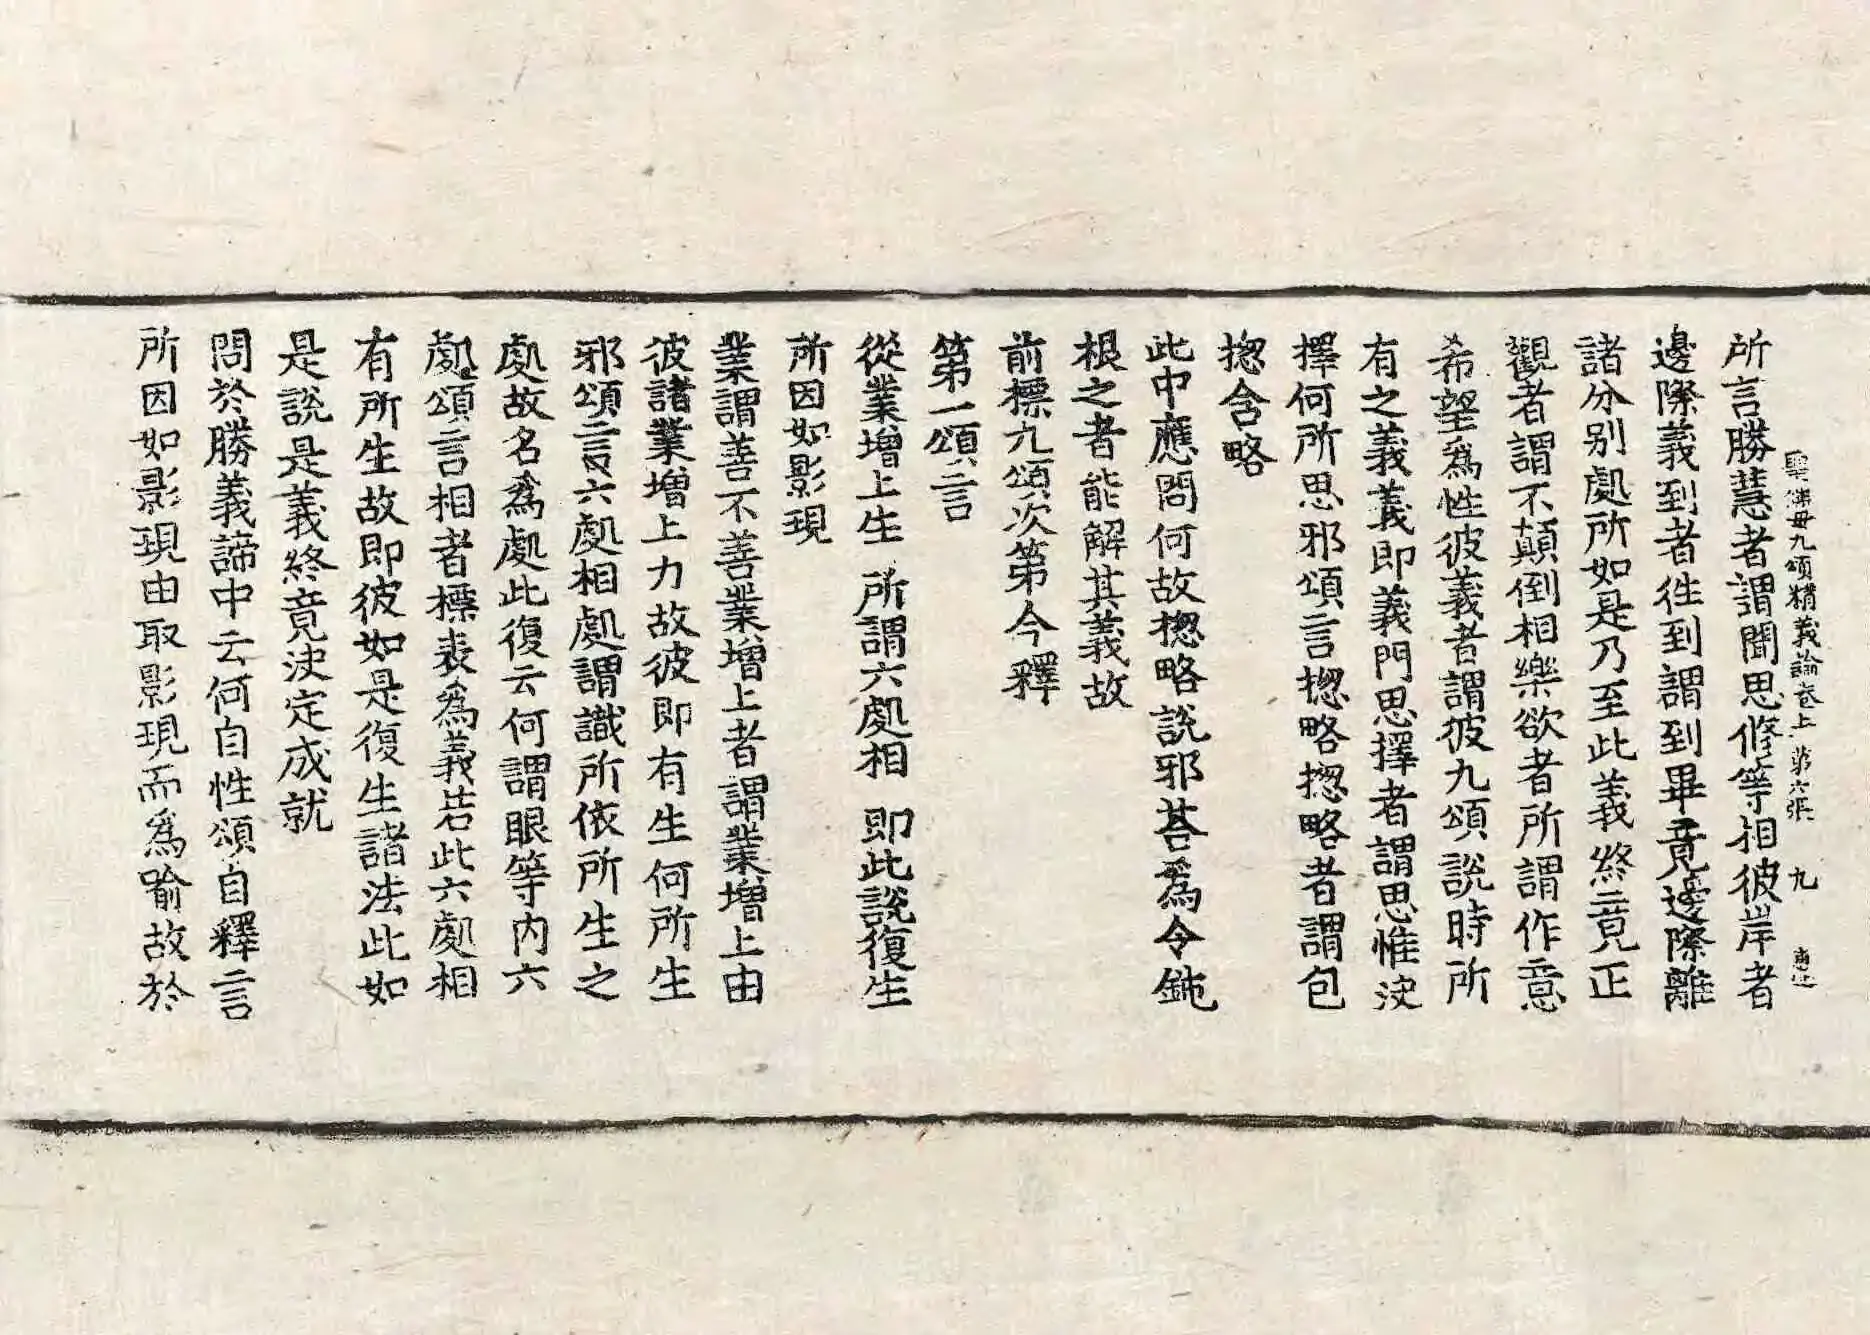 聖佛母九頌精義論卷上 第六張 九
所言勝慧者謂聞思修等相彼岸者
邊際義到者徃到謂到畢竟邊際離
諸分别處所如是乃至此義終竟正
觀者謂不顛倒相樂欲者所謂作意
希望為性彼義者謂彼九頌說時所
有之義義即義門思擇者謂思惟決
擇何所思邪頌言揔略揔略者謂包
揔含略
此中應問何故揔略說邪荅為令鈍
根之者能解其義故
前標九頌次第今釋
第一頌言
從業增上生 所謂六處相 即此說復生
所因如影現
業謂善不善業增上者謂業增上由
彼諸業增上力故彼即有生何所生
邪頌言六處相處謂識所依所生之
處故名為處此復云何謂眼等內六
處頌言相者標表為義若此六處相
有所生故即彼如是復生諸法此如
是說是義終竟決定成就
問於勝義諦中云何自性頌自釋言
所因如影現由取影現而為喻故於